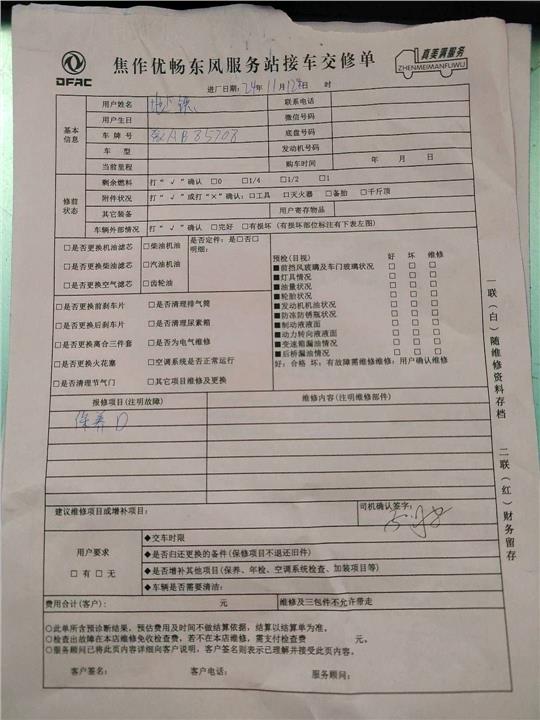 DFAC
焦作优畅东风服务站接车交修单
真美满服务
ZHENMEIMANFUWU
进厂日期：24年11月12日 时
基本信息
用户姓名 联系电话
用户生日 微信号码
车牌号 底盘号码
车型 发动机号码
当前里程 购车时间 年 月 日
修前状态
剩余燃料 打“√”确认 □0 □1/4 □1/2 □1
附件状况 打“√”或打“×”确认：□工具 □灭火器 □备胎 □千斤顶
其它装备 用户寄存物品
车辆外部情况 打“√”确认 □完好 □有损坏（有损坏部位标注有下表左图）
□是否更换机油滤芯 □柴油机油 是否定件：是□否□
明细：
□是否更换柴油滤芯 □汽油机油
□是否更换空气滤芯 □齿轮油
□是否更换前刹车片 □是否清理排气筒
□是否更换后刹车片 □是否清理尿素箱
□是否更换离合三件套 □是否为电气维修
□是否更换火花塞 □空调系统是否正常运行
□是否清理节气门 □其它项目维修及更换
预检(目视) 好 坏 维修
■前挡风玻璃及车门玻璃状况 □ □ □
■灯具情况 □ □ □
■油量状况 □ □ □
■轮胎状况 □ □ □
■发动机机油状况 □ □ □
■防冻防锈瓶状况 □ □ □
■制动液液面 □ □ □
■动力转向液液面 □ □ □
■变速箱漏油情况 □ □ □
■后桥漏油情况 □ □ □
好：合格 坏：有故障需维修维修：用户确认维修
报修项目(注明故障) 维修内容(注明维修部件)
保养D
建议维修项目或增补项目： 司机确认签字：
用户要求
□有 □无
◆交车时限
◆是否归还更换的备件(保修项目不退还旧件)
◆是否增补其他项目(保养、年检、空调系统检查、加装项目等)
◆车辆是否需要清洁：
费用合计(客户)： 元 维修及三包件不允许带走
○此单所含预诊断结果，预估费用及时间不做结算依据，结算以结算单为准。
○检查出故障在本店维修免收检查费，若不在本店维修，需支付检查费 元。
○服务顾问已将此页内容详细向客户说明，客户签名则表示已理解并接受此页内容。
客户签名： 客户电话： 服务顾问：
一联(白)随维修资料存档 二联(红)财务留存